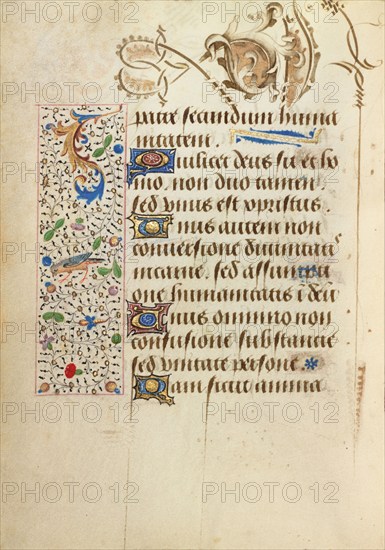 patre secundum huma
nitatem.
Qui licet deus sit et ho
mo, non duo tamen
sed vnus est xpristus.
Unus autem non
conversione divinitatis
in carne. sed assumpti
one humanitatis i deu
Unus omnino non
confusione substantie
sed vnitate persone.
Nam sicut anima